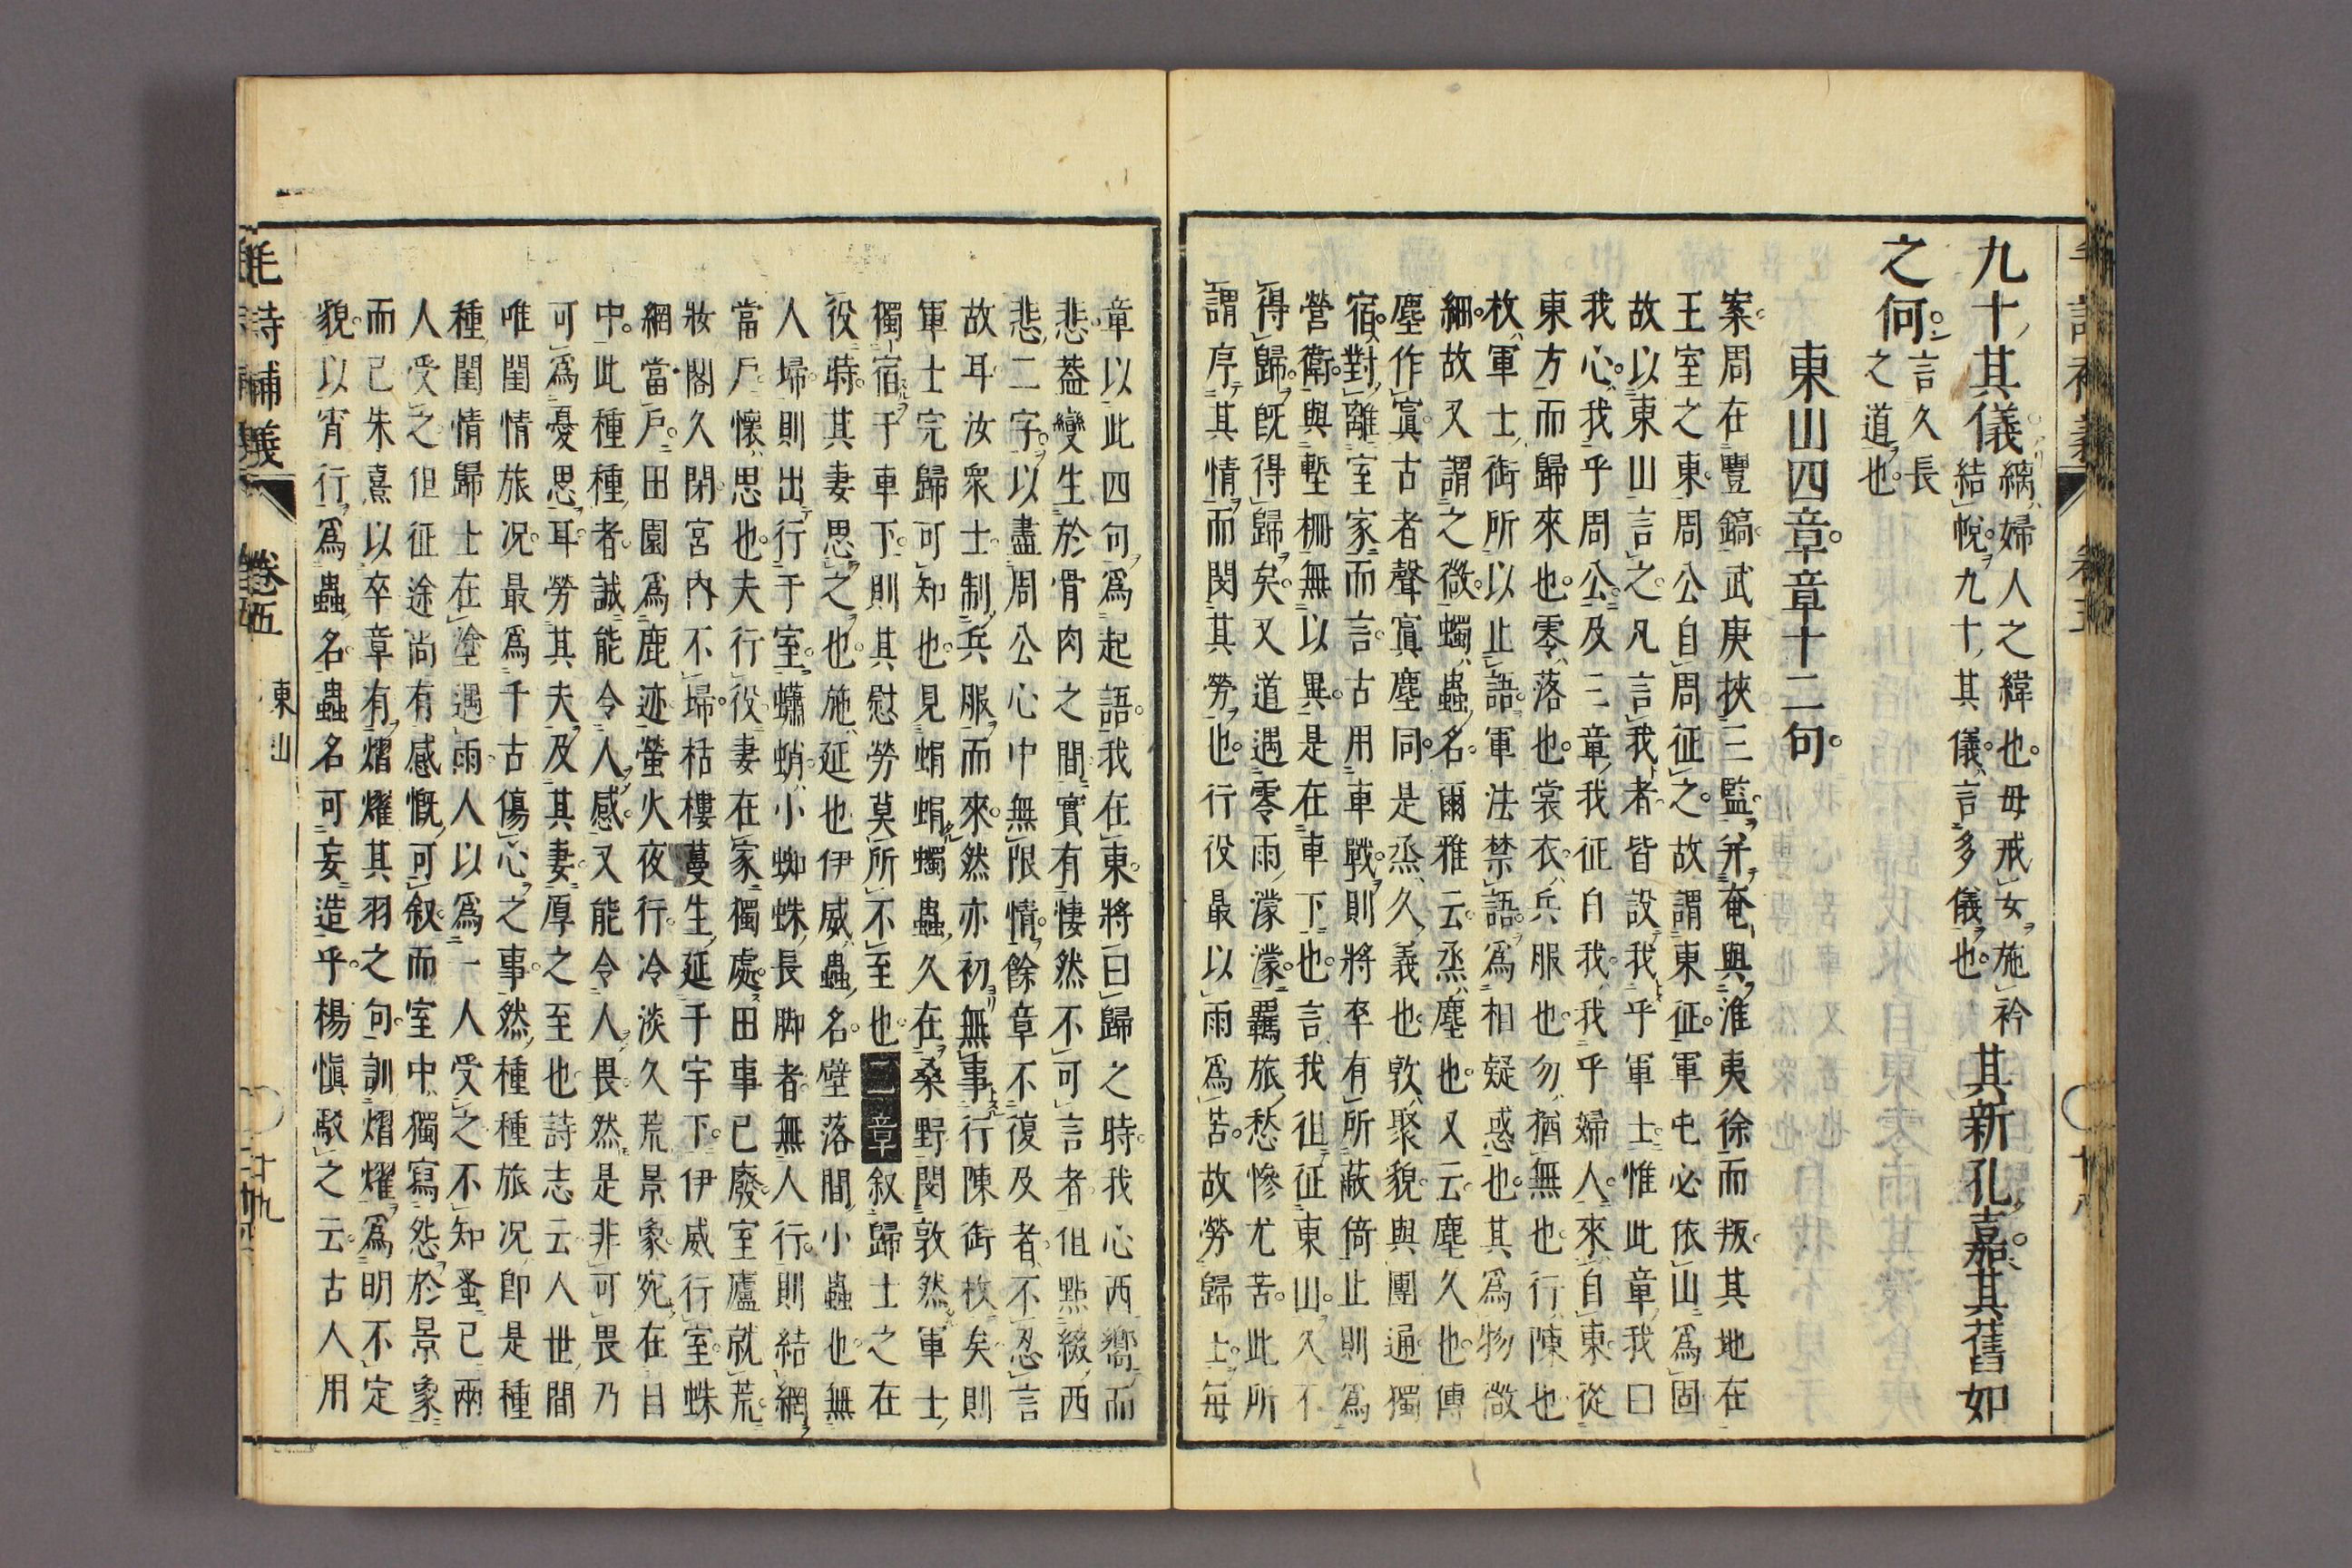 九十其儀縭婦人之緯也母戒女施衿結帨九十其儀言多儀也其新孔嘉其舊如
之何言久長之道也
東山四章章十二句
案周在豐鎬武庚挾三監弁奄與淮夷徐而叛其地在
王室之東周公自周征之故謂東征軍屯必依山為固
故以東山言之凡言我者皆設我乎軍士惟此章我曰
我心我乎周公及三章我征自我我乎婦人來自東從
東方而歸來也零落也裳衣兵服也勿猶無也行陳也
枚軍士銜所以止語軍法禁語為相疑惑也其為物微
細故又謂之微蠋蟲名爾雅云烝塵也又云塵久也傳
塵作寘古者聲寘塵同是烝久義也敦聚貌與團通獨
宿對離室家而言古用車戰則將卒有所蔽倚止則為
營衛與塹柵無以異是在車下也言我徂征東山久不
得歸既得歸矣又道遇零雨濛濛羈旅愁慘尤苦此所
謂序其情而閔其勞也行役最以雨為苦故勞歸士每
章以此四句為起語我在東將曰歸之時我心西嚮而
悲蓋變生於骨肉之間實有悽然不可言者但點綴西
悲二字以盡周公心中無限情餘章不復及者不忍言
故耳汝眾士制兵服而來然亦初無事行陳銜枚矣則
軍士完歸可知也見蜎蜎蠋蟲久在桑野閔敦然軍士
獨宿于車下則其慰勞莫所不至也二章叙歸士之在
役時其妻思之也施延也伊威蟲名壁落間小蟲也無
人埽則出行于室蠨蛸小蜘蛛長脚者無人行則結網
當戶懷思也夫行役妻在家獨處田事已廢室廬就荒
妝閣久閉宮內不埽枯樓蔓生延于宇下伊威行室蛛
網當戶田園為鹿迹螢火夜行冷淡久荒景象宛在目
中此種種者誠能令人感又能令人畏然是非可畏乃
可為憂思耳勞其夫及其妻厚之至也詩志云人世間
唯閨情旅况最為千古傷心之事然種種旅况卽是種
種閨情歸士在塗遇雨人以為一人受之不知蚤已兩
人受之但征途尚有感慨可叙而室中獨寫怨於景象
而已朱熹以卒章有熠燿其羽之句訓熠燿為明不定
貌以宵行為蟲名蟲名可妄造乎楊慎駁之云古人用
毛詩補義 卷五 東山 廿九